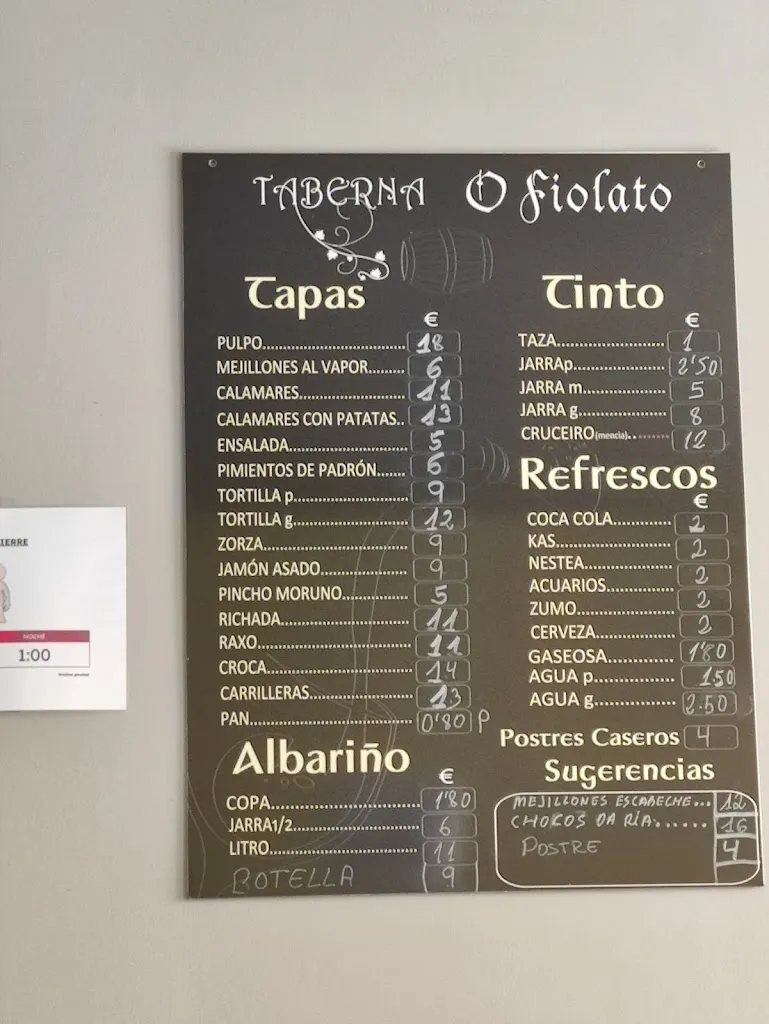 TABERNA O Fiolato
Tapas
€
PULPO 18
MEJILLONES AL VAPOR 6
CALAMARES 11
CALAMARES CON PATATAS.. 13
ENSALADA 5
PIMIENTOS DE PADRÓN 6
TORTILLA p 9
TORTILLA g 12
ZORZA 9
JAMÓN ASADO 9
PINCHO MORUNO 5
RICHADA 11
RAXO 11
CROCA 14
CARRILLERAS 13
PAN 0'80 P
Albariño
€
COPA 1'80
JARRA1/2 6
LITRO 11
BOTELLA 9
Tinto
€
TAZA 1
JARRAp 2'50
JARRA m 5
JARRA g 8
CRUCEIRO(mencia) 12
Refrescos
€
COCA COLA 2
KAS 2
NESTEA 2
ACUARIOS 2
ZUMO 2
CERVEZA 2
GASEOSA 1'80
AGUA p 1.50
AGUA g 2.50
Postres Caseros 4
Sugerencias
MEJILLONES ESCABECHE... 12
CHOCOS DA RÍA 16
POSTRE 4
IERRE
NOCHE
1:00